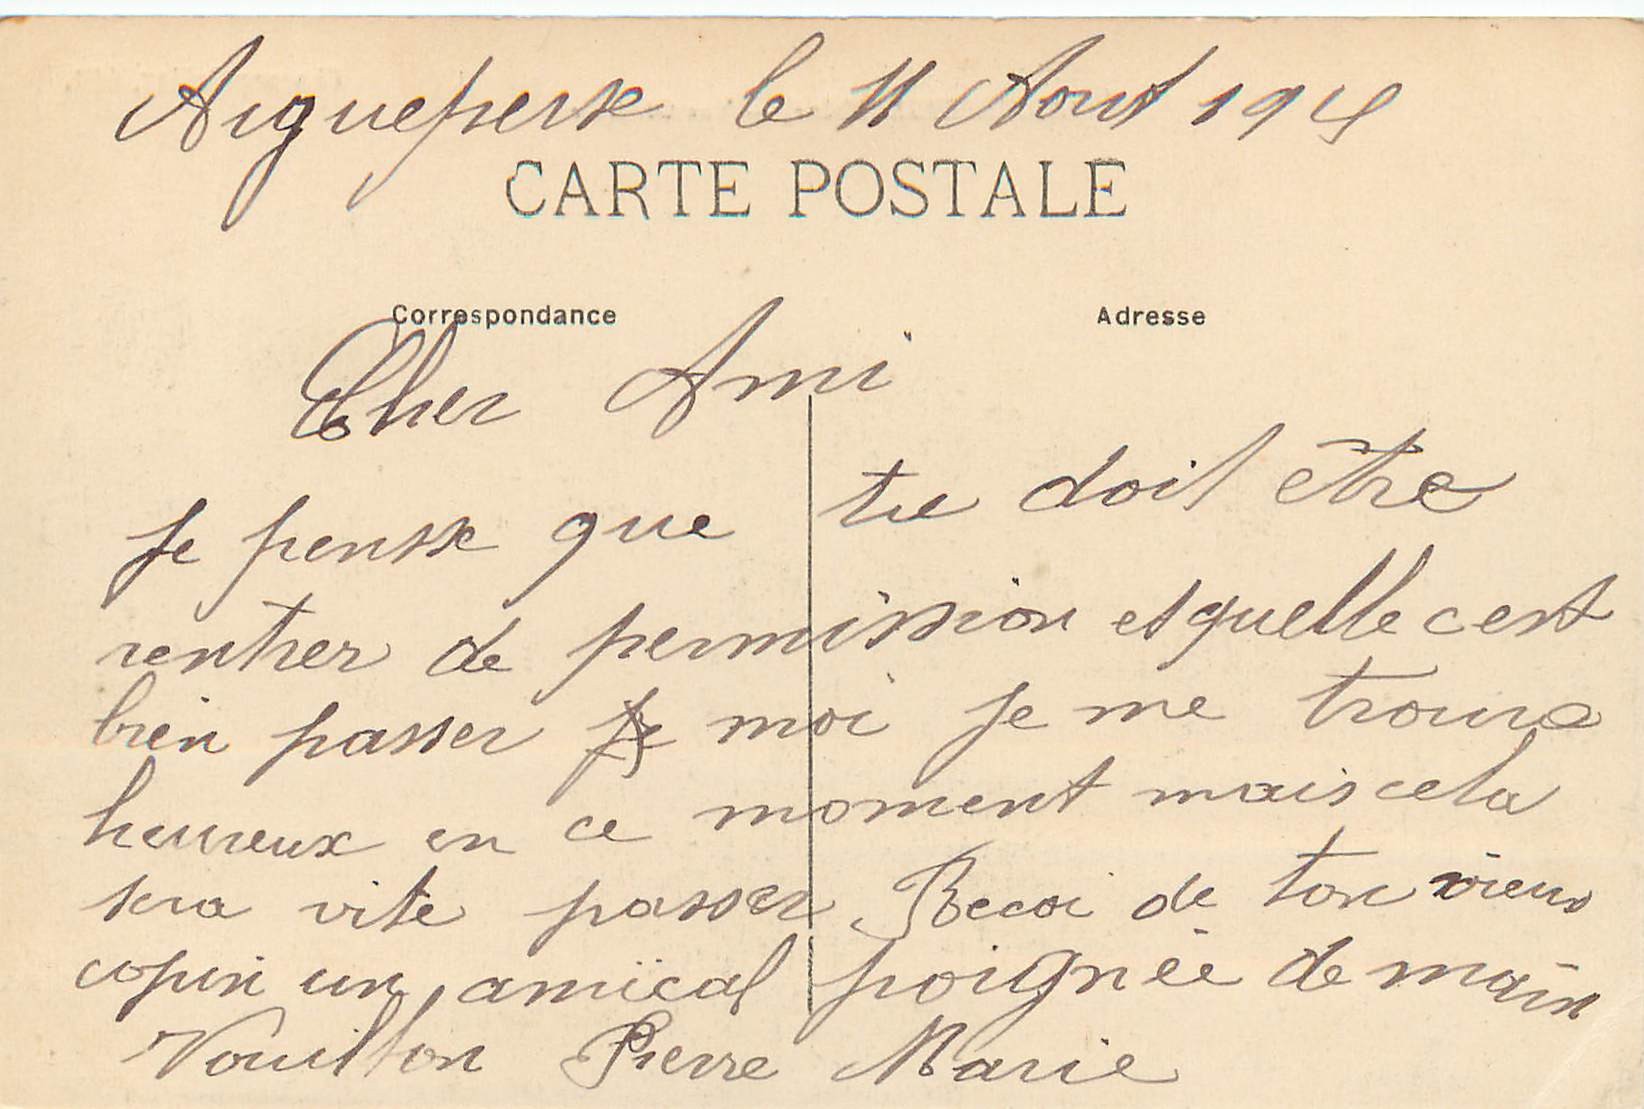 Aigueperse le 11 Aout 1915
CARTE POSTALE
Correspondance Adresse
Cher Ami
Je pense que tu doit être
rentrer de permission et quelle cest
bien passer moi je me trouve
heureux en ce moment mais cela
sera vite passer Recoi de ton vieux
copin un amical poignée de main
Vouillon Pierre Marie